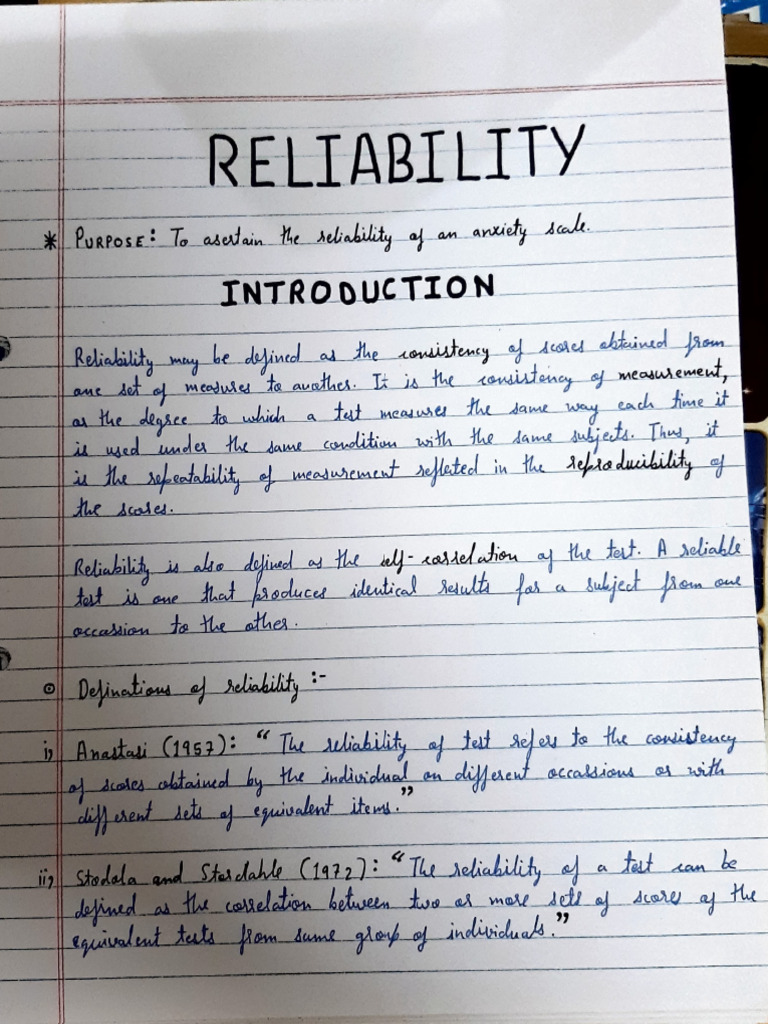 RELIABILITY
* PURPOSE: To asertain the reliability of an anxiety scale.
INTRODUCTION
Reliability may be defined as the consistency of scores obtained from
one set of measures to another. It is the consistency of measurement,
or the degree to which a test measures the same way each time it
is used under the same condition with the same subjects. Thus, it
is the repeatability of measurement reflected in the reproducibility of
the scores.
Reliability is also defined as the self-correlation of the test. A reliable
test is one that produces identical results for a subject from one
occassion to the other.
⊙ Definations of reliability :-
i, Anastasi (1957): “The reliability of test refers to the consistency
of scores obtained by the individual on different occassions or with
different sets of equivalent items.”
ii, Stodola and Stordahle (1972): “The reliability of a test can be
defined as the correlation between two or more sets of scores of the
equivalent tests from same group of individuals.”